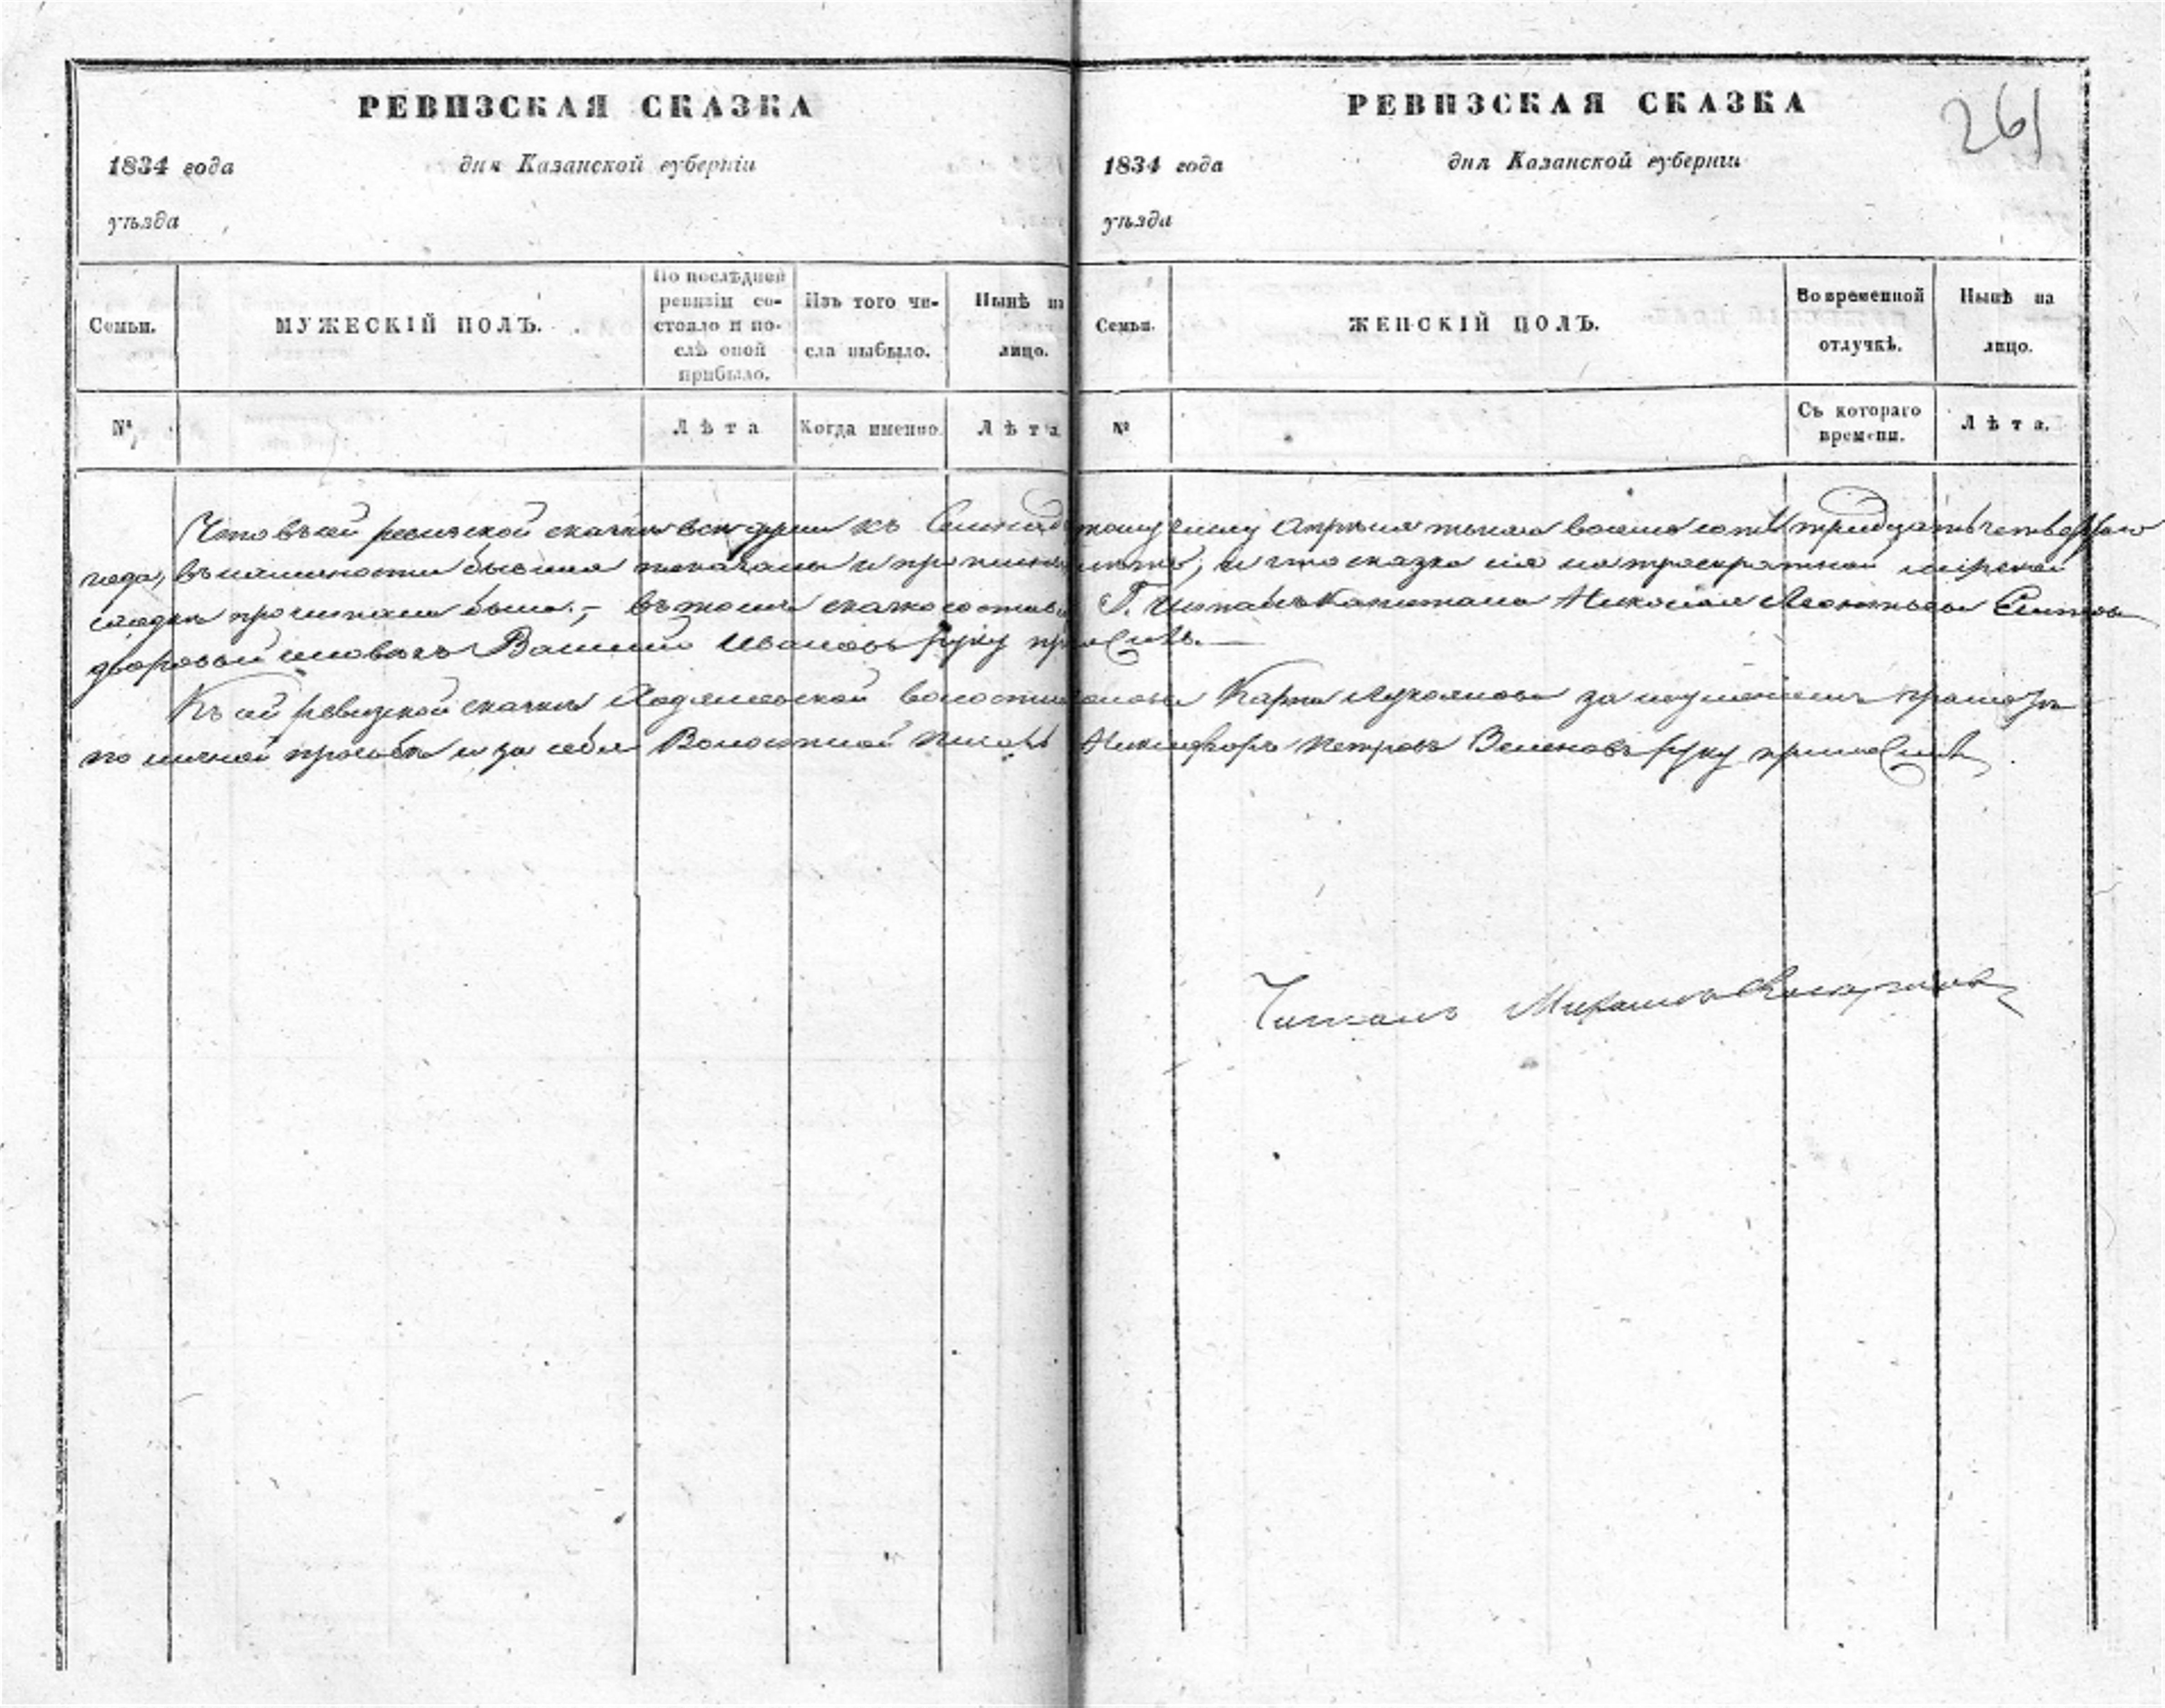 РЕВИЗСКАЯ СКАЗКА
1834 года дня Казанской губерніи
уѣзда
Семьи.
МУЖЕСКІЙ ПОЛЪ.
По послѣдней ревизіи состояло и послѣ оной прибыло.
Изъ того числа выбыло.
Нынѣ на лицо.
№
Лѣта
Когда именно
Лѣта
РЕВИЗСКАЯ СКАЗКА
261
1834 года дня Казанской губерніи
уѣзда
Семьи.
ЖЕНСКІЙ ПОЛЪ.
Во временной отлучкѣ.
Нынѣ на лицо.
№
Съ котораго времени.
Лѣта.
Что въ сей ревизской сказкѣ всѣ души къ числу Апрѣля тысяча восемь сотъ тридцать четвертаго
года, въ наличности бывшія показаны и и что сказка сія на троекратной мірской
сходкѣ прочитана была. – въ томъ Г. Штабъ Капитана Николая
дворовый человѣкъ Василий Ивановъ руку приложилъ. —
Къ сей ревизской сказкѣ волости Карпа за неумѣніемъ грамотѣ
по личной прозьбѣ и за себя Волостной Писарь Никифоръ Петровъ Зеленовъ руку приложилъ
Читалъ Михаилъ